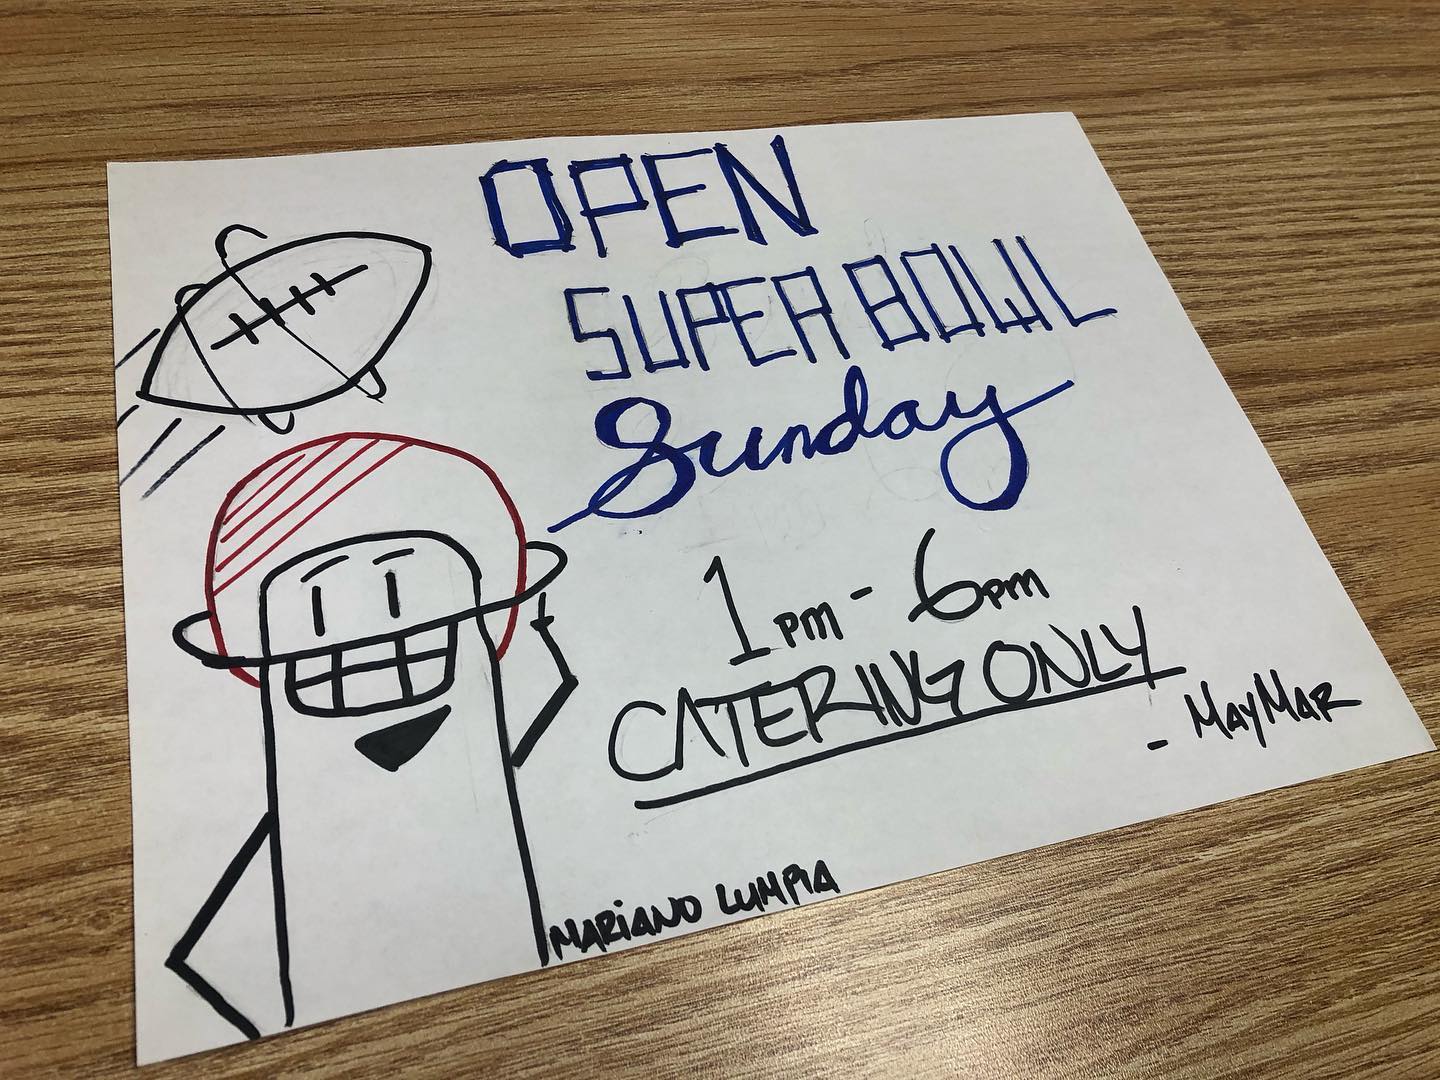 OPEN
SUPER BOWL
Sunday
1pm - 6pm
CATERING ONLY
- MAYMAR
MARiANO LUMPIA